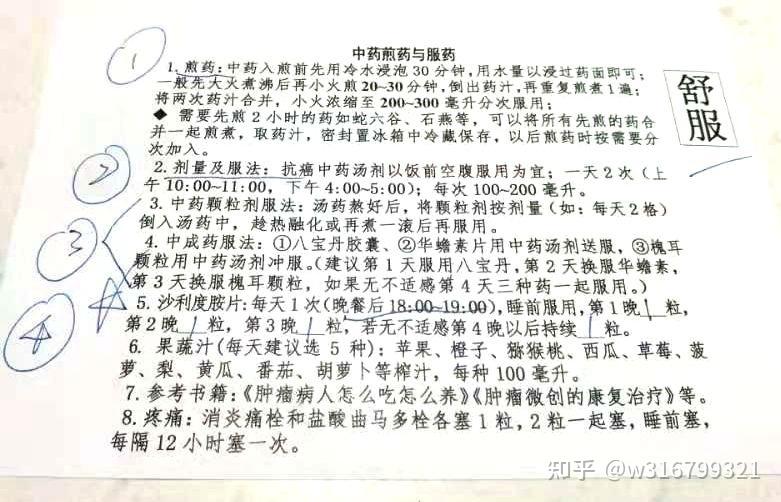 中药煎药与服药
1. 煎药:中药入煎前先用冷水浸泡30分钟,用水量以浸过药面即可;
一般先大火煮沸后再小火煎20~30分钟,倒出药汁,再重复煎煮1遍;
将两次药汁合并,小火浓缩至200~300毫升分次服用;
◆ 需要先煎2小时的药如蛇六谷、石燕等,可以将所有先煎的药合
并一起煎煮,取药汁,密封置冰箱中冷藏保存,以后煎药时按需要分
次加入。
舒服
2. 剂量及服法:抗癌中药汤剂以饭前空腹服用为宜;一天2次(上
午10:00~11:00,下午4:00~5:00);每次100~200毫升。
3. 中药颗粒剂服法:汤药熬好后,将颗粒剂按剂量(如:每天2格)
倒入汤药中,趁热融化或再煮一滚后再服用。
4. 中成药服法:①八宝丹胶囊、②华蟾素片用中药汤剂送服,③槐耳
颗粒用中药汤剂冲服。(建议第1天服用八宝丹,第2天换服华蟾素,
第3天换服槐耳颗粒,如果无不适感第4天三种药一起服用。)
5. 沙利度胺片:每天1次(晚餐后18:00~19:00),睡前服用,第1晚1粒,
第2晚1粒,第3晚1粒,若无不适感第4晚以后持续1粒。
6. 果蔬汁(每天建议选5种):苹果、橙子、猕猴桃、西瓜、草莓、菠
萝、梨、黄瓜、番茄、胡萝卜等榨汁,每种100毫升。
7. 参考书籍:《肿瘤病人怎么吃怎么养》《肿瘤微创的康复治疗》等。
8. 疼痛:消炎痛栓和盐酸曲马多栓各塞1粒,2粒一起塞,睡前塞,
每隔12小时塞一次。
1
2
3
4
知乎 @w316799321